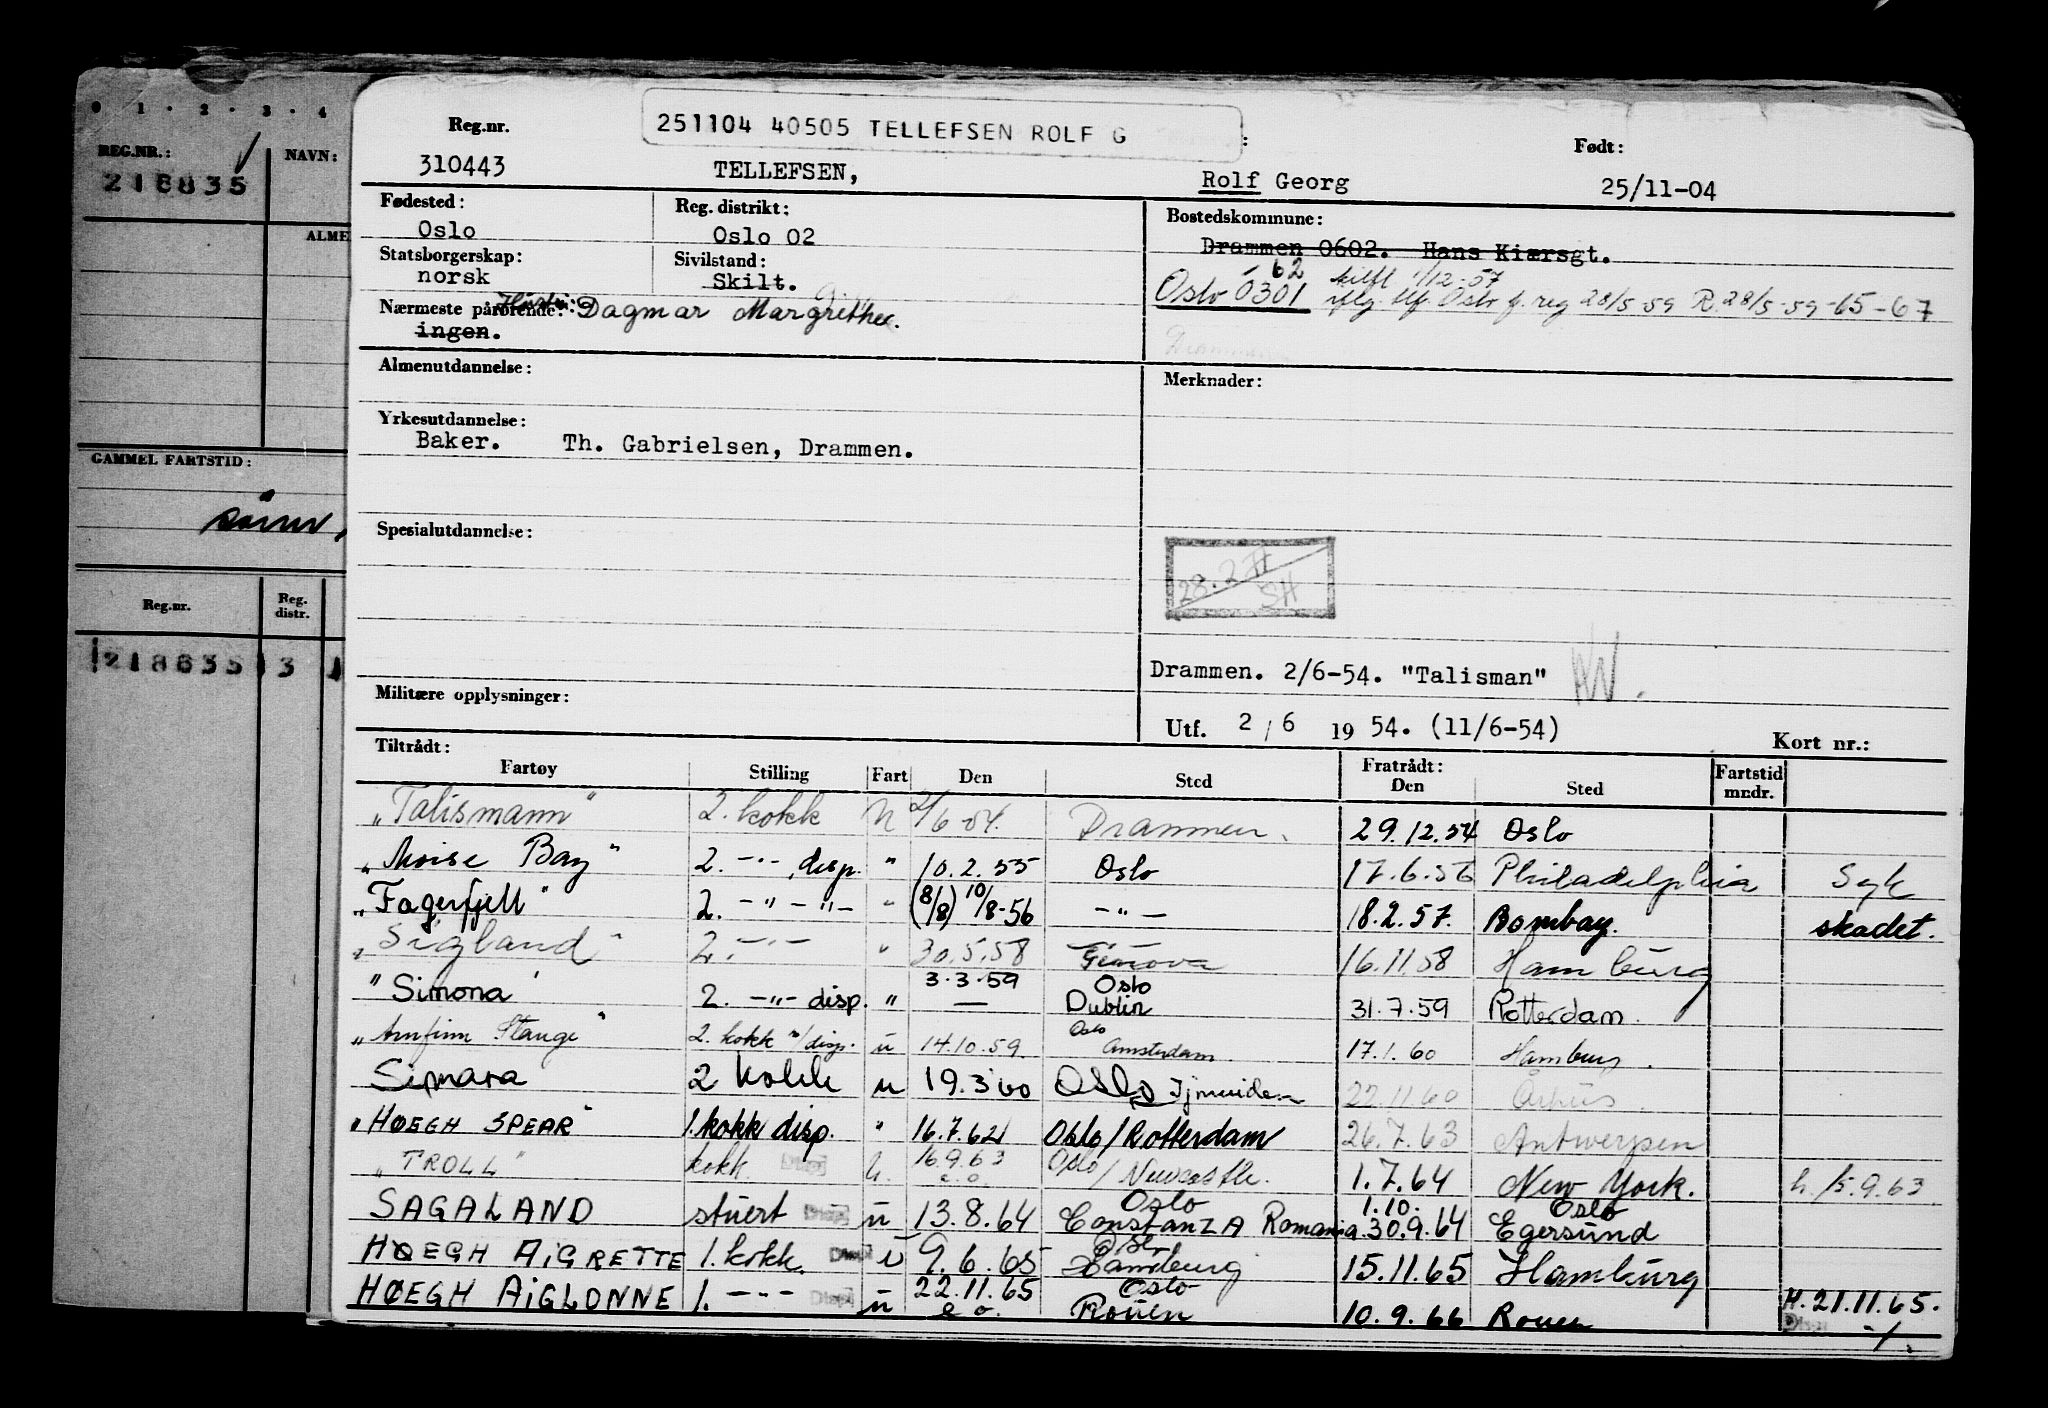 0 1 - 2 - 3 - 4
REG.NR.: NAVN:
218835
ALME
GAMMEL FARTSTID:
Reg.nr. Reg. distr.
218835 3
251104 40505 TELLEFSEN ROLF G
Reg.nr. : Født:
310443 TELLEFSEN, Rolf Georg 25/11-04
Fødested: Reg. distrikt: Bostedskommune:
Oslo Oslo 02 Drammen 0602. Hans Kiærsgt.
Statsborgerskap: Sivilstand: 62 skifl 1/12-57
norsk Skilt. Oslo 0301 iflg. tlf. Oslo f. reg 28/5-59 R.28/5-59-65-67
Nærmeste pårørende: Hustru: Dagmar Margrethe.
ingen.
Almenutdannelse: Merknader:
Yrkesutdannelse:
Baker. Th. Gabrielsen, Drammen.
Spesialutdannelse:
28.2 II
SH
Drammen. 2/6-54. "Talisman"
Militære opplysninger:
Utf. 2/6 1954. (11/6-54)
Tiltrådt: Kort nr.:
Fartøy Stilling Fart Den Sted Fratrådt: Den Sted Fartstid mndr.
"Talismann" 2. kokk N 2/6-54. Drammen. 29.12.54 Oslo
"Moise Bay" 2. -"- disp. " 10.2.55 Oslo 17.6.56 Philadelphia Syk
"Fagerfjell" 2. -"-"- " (8/8) 10/8-56 -"- 18.2.57. Bombay. skadet.
"Sigland" 2. -"- " 30.5.58 Genova 16.11.58 Hamburg
3.3.59 Oslo
"Simona" 2. -"- disp. " — Dublin 31.7.59 Rotterdam.
Oslo
"Arnfinn Stange" 2. kokk m/disp. u 14.10.59 Amsterdam. 17.1.60 Hamburg.
Simara 2 kokk u 19.3.60 Oslo Ijmuiden 22.11.60 Århus.
"HØEGH SPEAR" 1.kokk disp. " 16.7.62 Oslo/Rotterdam 26.7.63 Antwerpen
"TROLL" kokk Disp u. 16.9.63 e.o. Oslo/Newcastle. 1.7.64 New York. h. 15.9.63
Oslo 1.10. Oslo
SAGALAND stuert Disp u 13.8.64 Constanza Romania 30.9.64 Egersund
Oslo
HØEGH AIGRETTE 1. kokk. Disp u 9.6.65 Hamburg 15.11.65 Hamburg
22.11.65 Oslo H. 21.11.65.
HØEGH AIGLONNE 1. -"- Disp u e.o. Rouen 10.9.66 Rouen Disp